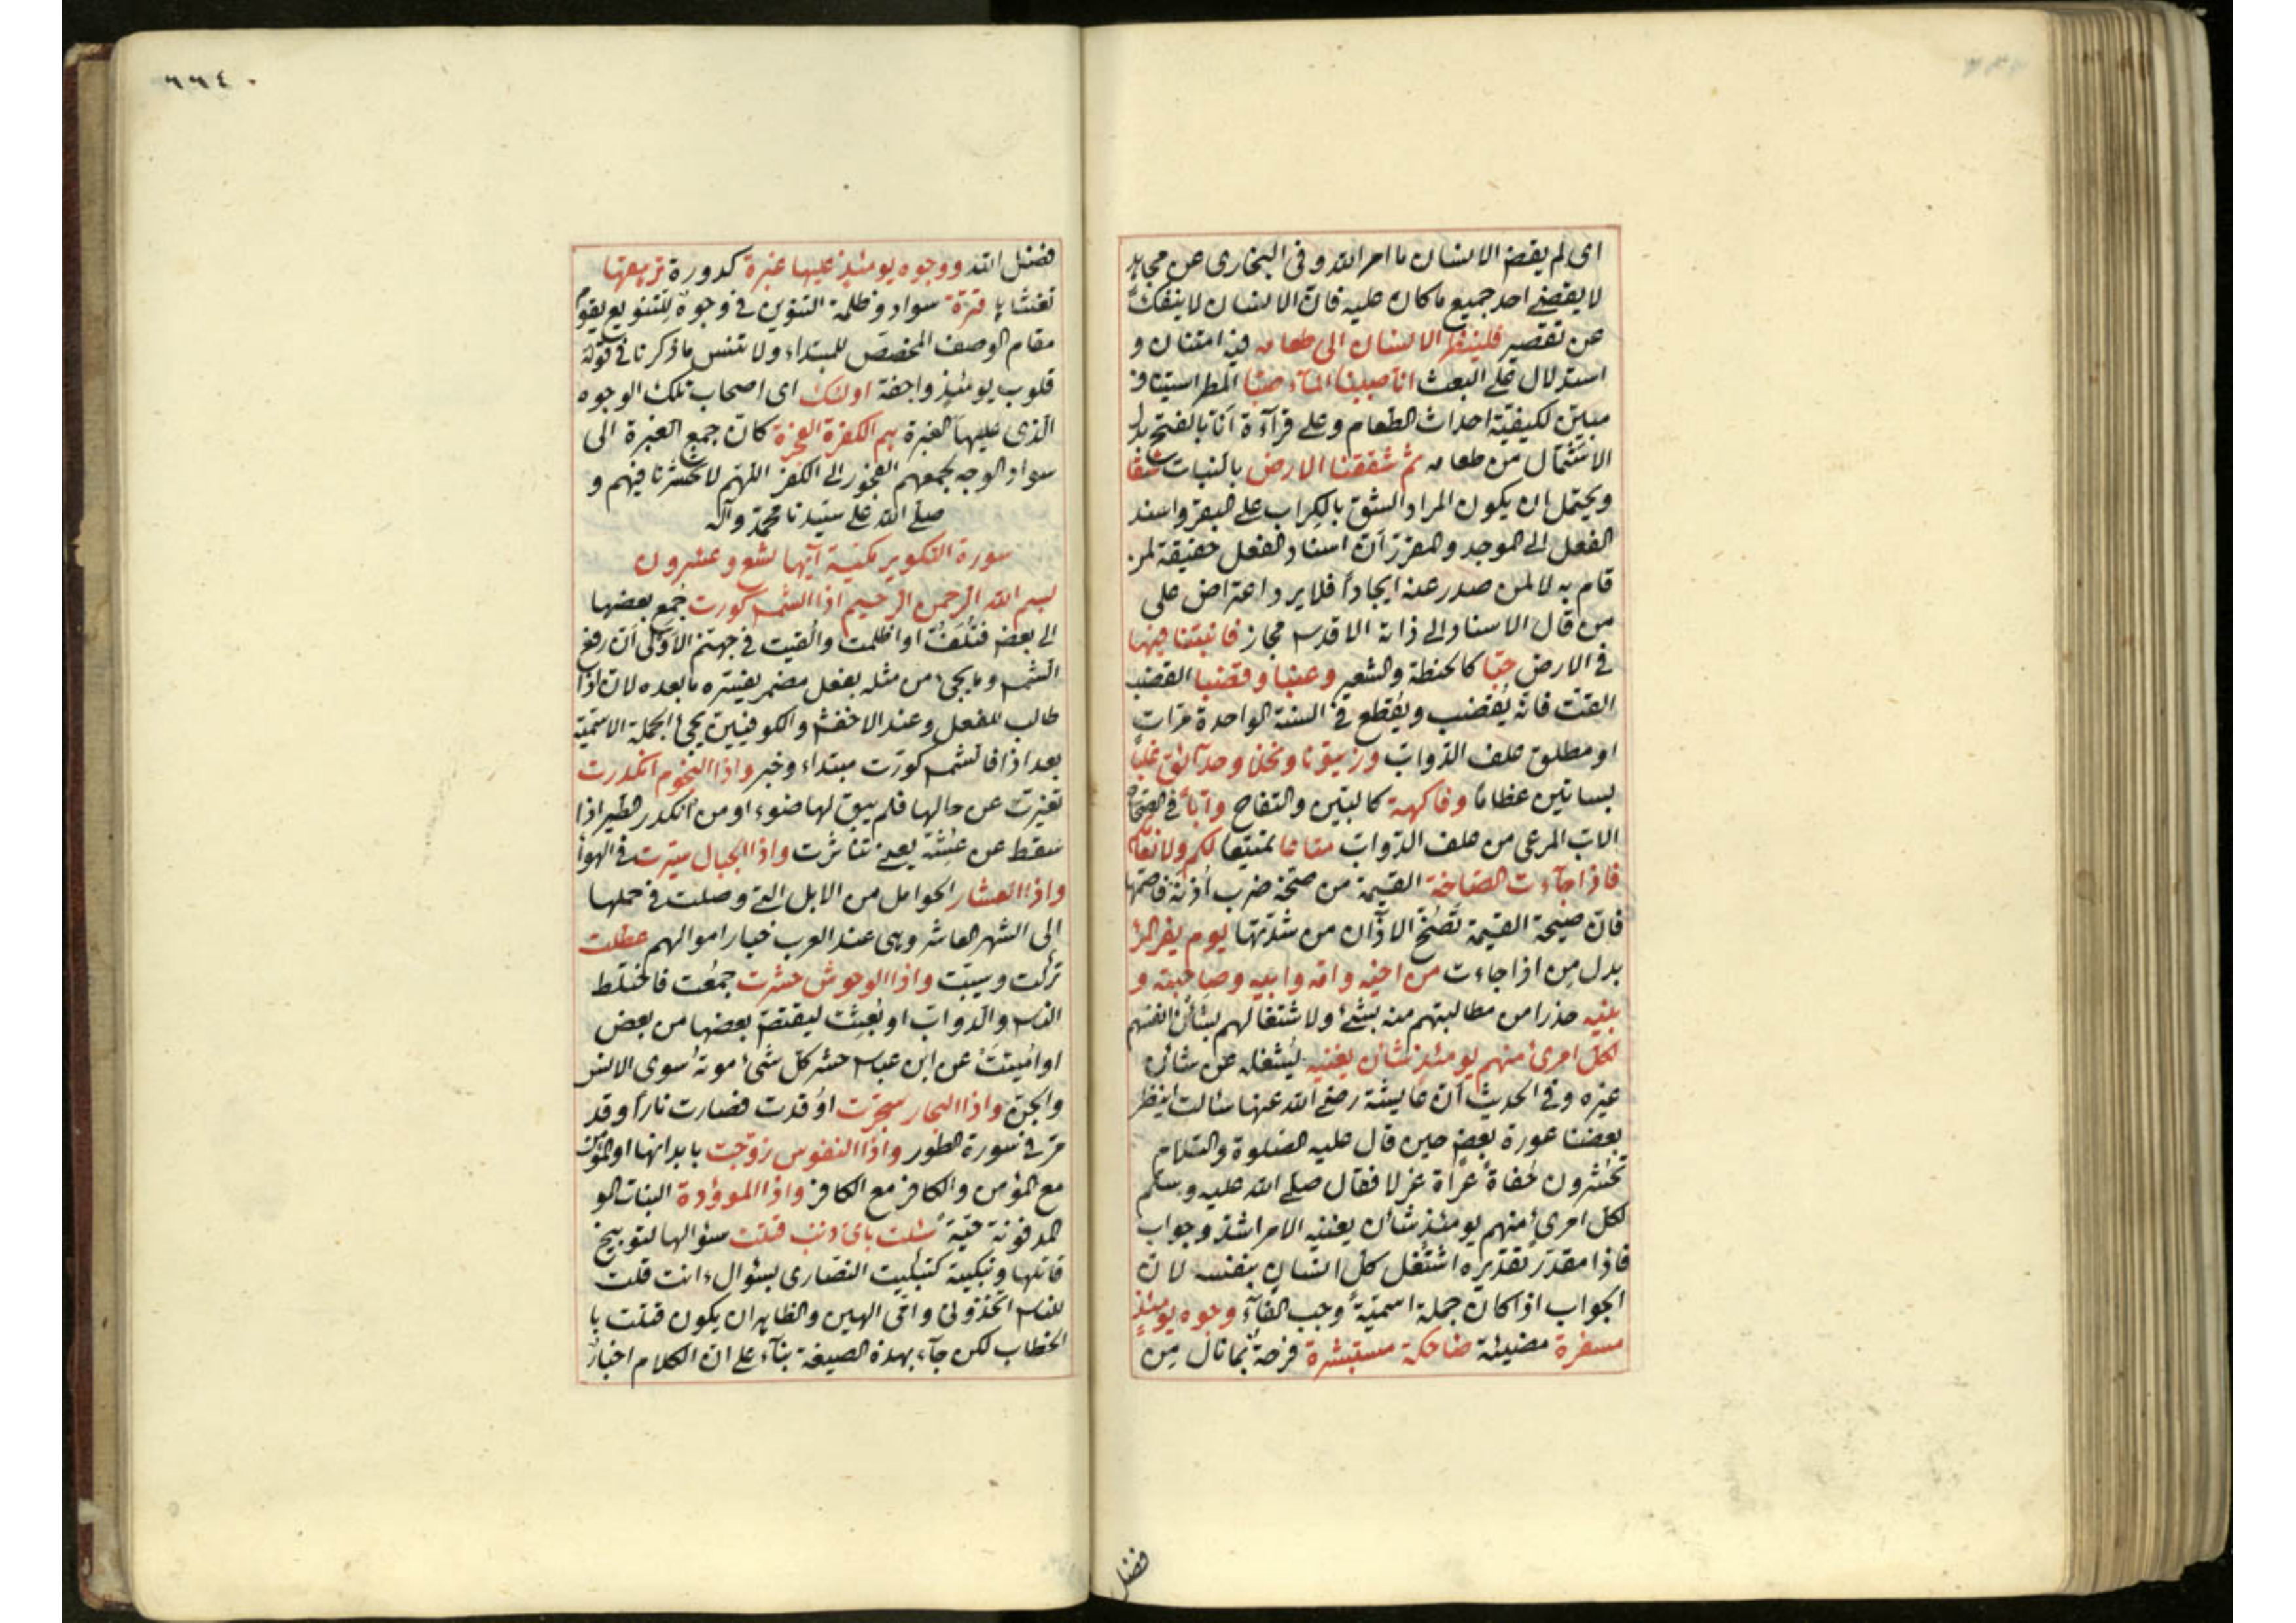 اى لم يقض الانسان ما امر الله وفى البخارى عن مجاهد
لا يقضى احد جميع ما كان عليه فان الانسان لا ينفك
عن تقصير فلينظر الانسان الى طعامه فيه امتنان و
استدلال على البعث انا صببنا المآء صبا المطر استيناف
مبين لكيفية احداث الطعام وعلى قرآءة أنا بالفتح بدل
الاشتمال من طعامه ثم شققنا الارض بالنبات شقا
ويحتمل ان يكون المراد الشق بالكراب على البقر واسند
الفعل الى الموجد والمقرر أن اسناد الفعل حقيقة لمن
قام به لا لمن صدر عنه ايجاداً فلا يرد اعتراض على
من قال الاسناد الى ذاته الاقدس مجاز فانبتنا فيها
فى الارض حبا كالحنطة والشعير وعنبا وقضبا القضب
القت فانه يقضب ويقطع فى السنة الواحدة مرات
او مطلق علف الدواب وزيتونا ونخلا وحدآئق غلباً
بساتين عظاماً وفاكهة كالتين والتفاح وأباً فى الصحاح
الاب المرعى من علف الدواب متاعا تمتيعا لكم ولانعامكم
فاذا جآءت الصاخة القيمة من صخه ضرب اذنه فاصمها
فان صيحة القيمة تصخ الآذان من شدتها يوم يفر المرء
بدل من اذا جاءت من اخيه وامه وابيه وصاحبته و
بنيه حذرا من مطالبتهم منه بشئ ولاشتغالهم بشأن انفسهم
لكل امرئ منهم يومئذ شأن يغنيه ليشغله عن شأن
غيره وفى الحديث أن عايشة رضى الله عنها سألت اينظر
بعضنا عورة بعض حين قال عليه الصلوة والسلام
تحشرون حفاةً عراة غرلا فقال صلى الله عليه وسلم
لكل امرئ منهم يومئذ شأن يغنيه الامر اشد وجواب
فاذا مقدر تقديره اشتغل كل انسان بنفسه لان
الجواب اذا كان جملة اسميةً وجب الفآء وجوه يومئذ
مسفرة مضيئة ضاحكة مستبشرة فرحةٌ بما نال من
فضل
٦٦٤
فضل الله ووجوه يومئذ عليها غبرة كدورة ترهقها
تغشاها قترة سواد وظلمة التنوين فى وجوه للتنويع يقوم
مقام الوصف المخصص للمبتداء ولا تنس ما ذكرنا فى قوله
قلوب يومئذ واجفة اولئك اى اصحاب تلك الوجوه
الذى عليها الغبرة هم الكفرة الفجرة كان جمع الغبرة الى
سواد الوجه لجمعهم الفجور الى الكفر اللهم لا تحشرنا فيهم و
صلى الله على سيدنا محمد وآله
سورة التكوير مكية آيها تسع وعشرون
بسم الله الرحمن الرحيم اذا الشمس كورت جمع بعضها
الى بعض فتلفت او اظلمت والقيت فى جهنم الاولى أن رفع
الشمس وما يجئ من مثله بفعل مضمر يفسره ما بعده لان اذا
طالب للفعل وعند الاخفش والكوفيين يجئ الجملة الاسمية
بعد اذا فالشمس كورت مبتداء وخبر واذا النجوم انكدرت
تغيرت عن حالها فلم يبق لها ضوء او من انكدر الطير اذا
سقط عن عشه يعنى تناثرت واذا الجبال سيرت فى الهوآ
واذا العشار الحوامل من الابل التى وصلت فى حملها
الى الشهر العاشر وهى عند العرب خيار اموالهم عطلت
تركت وسيبت واذا الوحوش حشرت جمعت فاختلط
الناس والدواب او بعثت ليقتص بعضها من بعض
او اميتت عن ابن عباس حشر كل شئ موته سوى الانس
والجن واذا البحار سجرت اوقدت فصارت ناراً وقد
مر فى سورة الطور واذا النفوس زوجت بابدانها او المؤمن
مع المؤمن والكافر مع الكافر واذا الموؤدة البنات الو
المدفونة حيةً سئلت باى ذنب قتلت سؤالها لتوبيخ
قاتلها وتبكيته كتبكيت النصارى بسؤال ءانت قلت
للناس اتخذونى وامى الهين والظاهر ان يكون قتلت با
الخطاب لكن جآء بهذه الصيغة بنآء على ان الكلام اخبار